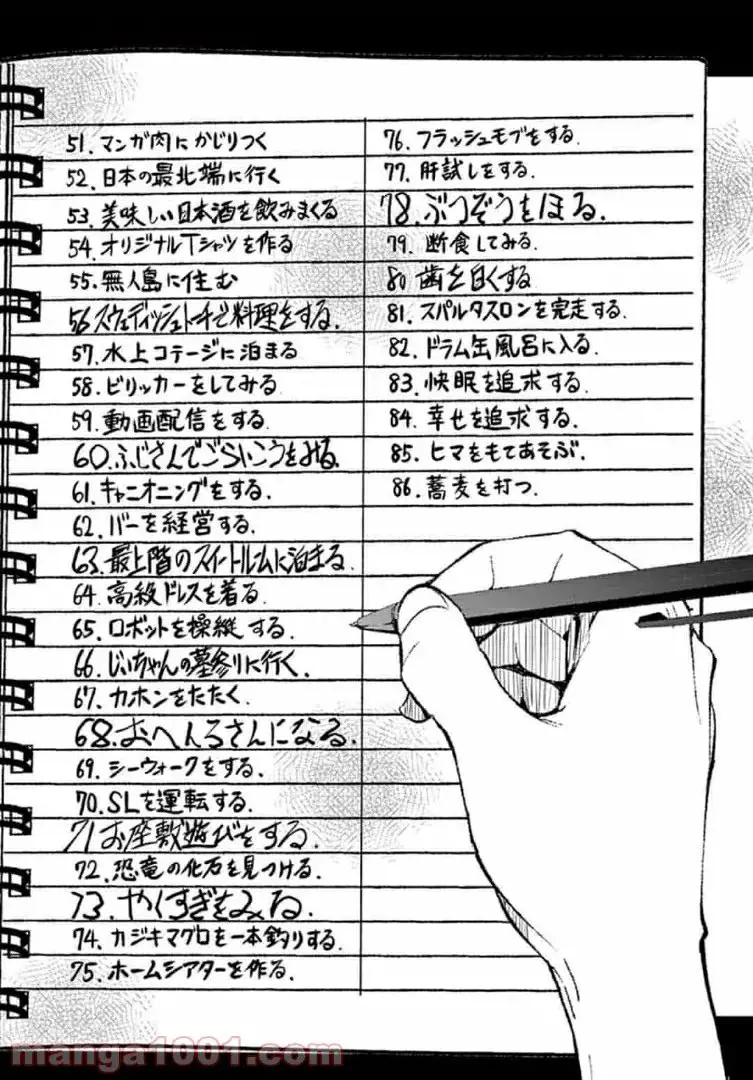 51. マンガ肉にかじりつく
52. 日本の最北端に行く
53. 美味しい日本酒を飲みまくる
54. オリジナルTシャツを作る
55. 無人島に住む
56 スウェディッシュトーチで料理をする.
57. 水上コテージに泊まる
58. ビリッカーをしてみる
59. 動画配信をする.
60. ふじさんでごらいこうをみる.
61. キャニオニングをする.
62. バーを経営する.
63. 最上階のスイートルームに泊まる
64. 高級ドレスを着る.
65. ロボットを操縦する.
66. じいちゃんの墓参りに行く.
67. カホンをたたく.
68. おへんろさんになる.
69. シーウォークをする.
70. SLを運転する.
71 お座敷遊びをする.
72. 恐竜の化石を見つける.
73. やくすぎをみる.
74. カジキマグロを一本釣りする.
75. ホームシアターを作る.
76. フラッシュモブをする.
77. 肝試しをする.
78. ぶつぞうをほる.
79. 断食してみる.
80 歯を白くする
81. スパルタスロンを完走する.
82. ドラム缶風呂に入る.
83. 快眠を追求する.
84. 幸せを追求する.
85. ヒマをもてあそぶ.
86. 蕎麦を打つ.
manga1001.com